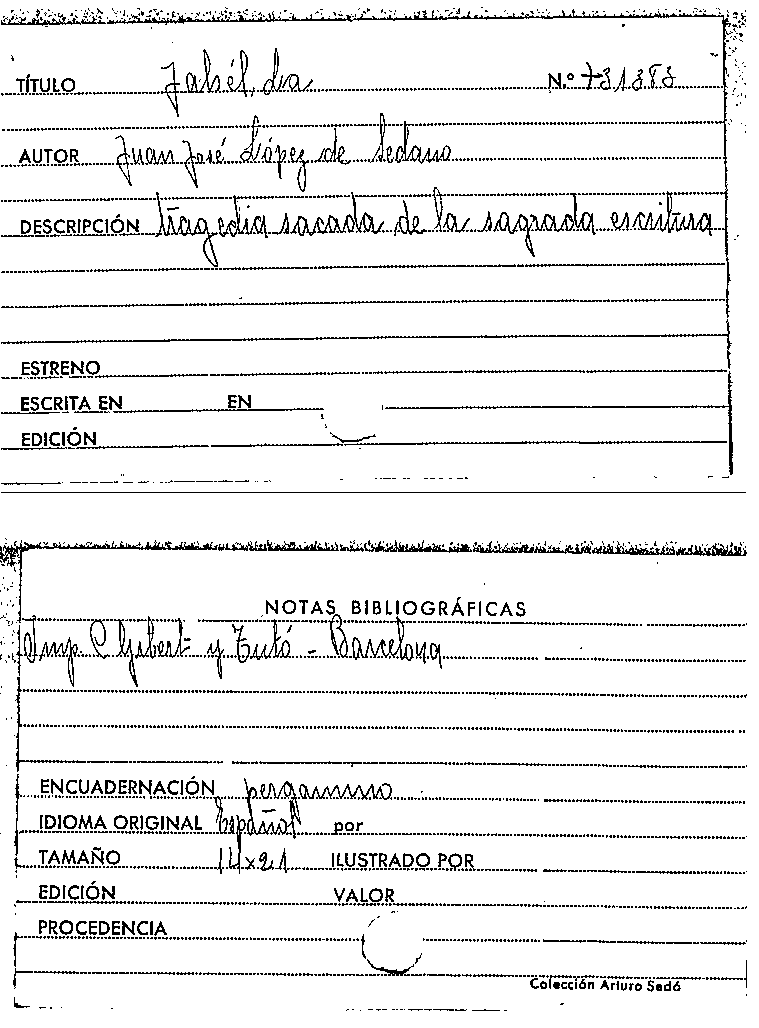 TÍTULO Jahél, La N.º 731383
AUTOR Juan José López de Sedano
DESCRIPCIÓN tragedia sacada de la sagrada escritura
ESTRENO
ESCRITA EN EN
EDICIÓN
NOTAS BIBLIOGRÁFICAS
Imp. C Gibert y Tutó - Barcelona
ENCUADERNACIÓN pergamino
IDIOMA ORIGINAL Español por
TAMAÑO 14x21 ILUSTRADO POR
EDICIÓN VALOR
PROCEDENCIA
Colección Arturo Sedó